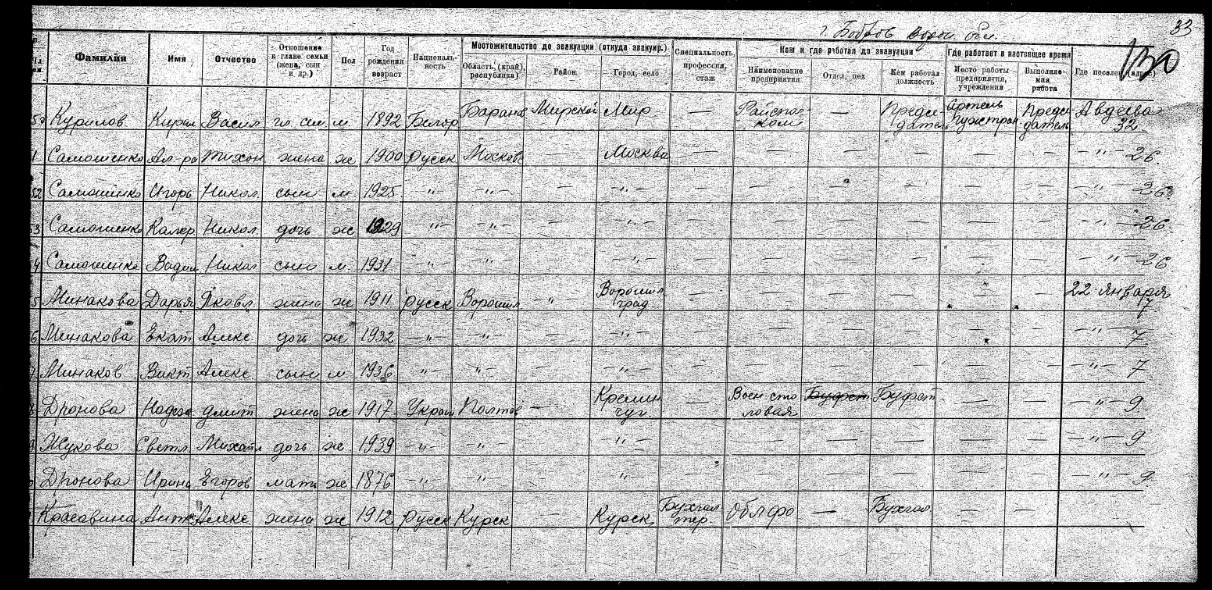 33
г. Бобров Ворон. обл.
Фамилия Имя Отчество Отношение к главе семьи (жена, сын и др.) Пол Год рождения возраст Националь-ность Местожительство до эвакуации (откуда эвакуир.) Область (край), республика) Район, Город, село Специальность профессия, стаж Кем и где работал до эвакуации Наименование предприятия Отдел, цех Кем работал должность Где работает в настоящее время Место работы предприятия, учреждения Выполняе-мая работа Где поселен (адрес)
Курилов Кирил Васил гл. сем м 1892 Белор Баранов Мирский Мир — Райспол ком — Предсе дател Артель Предсе датель Авдеева 32
1 Самошенко Ал-ра Тихон жена ж 1900 Русск Москов — Москва — — — — — — — " — 26
52 Самошенко Игорь Никол. сын м 1925 —"— —"— — —"— — — — — — — — " — 26
53 Самошенко Калер Никол. дочь ж 1929 —"— —"— — —"— — — — — — — — " — 26
54 Самошенко Вадим Никол сын м. 1931 —"— —"— — —"— — — — — — — — " — 26
5 Минакова Дарья Яковл. жена ж 1911 Русск Ворошил " Ворошил град — — — — — — 22 января 7
6 Минакова Екат Алекс дочь ж 1932 —"— —"— — —"— — — — — — — — " — 7
Минаков Викт Алекс сын м 1936 —"— —"— — —"— — — — — — — — " — 7
Дронова Надеж Дмит жена ж 1917 Украин Полтов — Кремен чуг — Воен сто ловая Буфет Буфет — — — " — 9
Жукова Светл Михайл дочь ж 1939 —"— —"— —"— — — — — — — — " — 9
Дронова Ирина Егоров мать ж 1876 —"— —"— —"— — — — — — — — " — 9
Красавина Ант Алекс жена ж 1912 Русск Курск — Курск Бухгал тер. Облфо — Бухгал. — — —